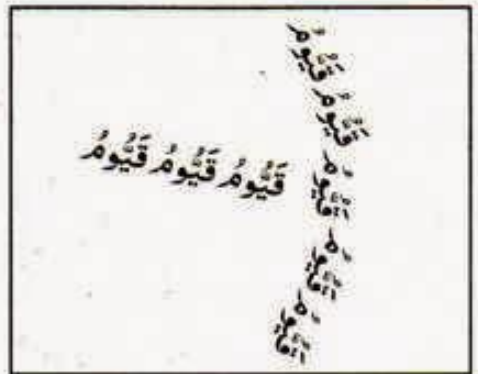 قَيُّومُ
قَيُّومُ
قَيُّومُ قَيُّومُ قَيُّومُ
قَيُّومُ
قَيُّومُ
قَيُّومُ